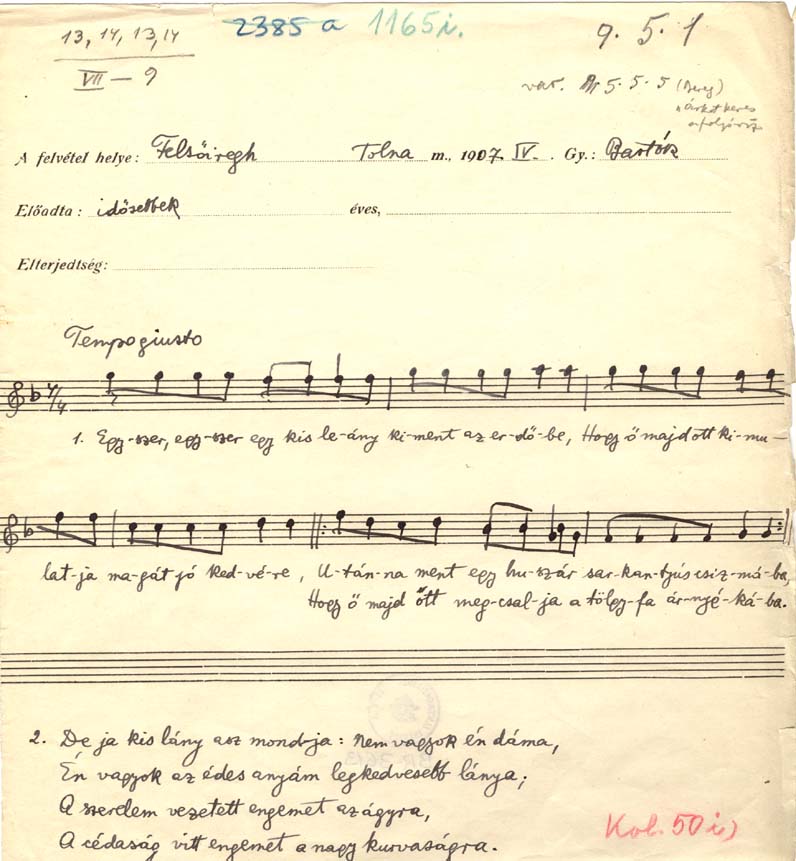 2385 a 1165i.
9. 5. 1
13, 14, 13, 14
VII — 9
var. 5. 5. 5 (Bereg)
A felvétel helye: Felsőiregh Tolna m., 1907. IV. Gy.: Bartók
Előadta: idősebbek éves,
Elterjedtség:
Tempo giusto
1. Egy-szer, egy-szer egy kis le-ány ki-ment az er-dő-be, Hogy ő majd ott ki-mu-
lat-ja ma-gát jó ked-vé-re, U-tán-na ment egy hu-szár sar-kan-tyús csiz-má-ba,
Hogy ő majd ott meg-csal-ja a tölgy-fa ár-nyé-ká-ba.
2. De ja kis lány asz mond-ja: nem vagyok én dáma,
Én vagyok az édes anyám legkedvesebb lánya;
A szerelem vezetett engemet az ágyra,
A cédaság vitt engemet a nagy kurvaságra.
Kol. 50 i)